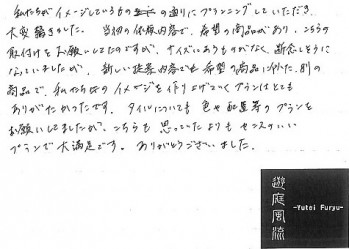 私たちがイメージしているものの通りにプランニングしていただき、
大変驚きました。当初の依頼内容で、希望の商品があり、こちらの
取付けをお願いしてたのですが、サイズにあうものがなく、断念しそうに
なっていましたが、新しい提案内容でも希望の商品に似た、別の
商品で、私たちのイメージを作り上げていくプランはとても
ありがたかったです。タイルについても色や配置等のプランを
お願いしてましたが、こちらも思っていたよりもセンスのいい
プランで大満足です。ありがとうございました。
遊庭風流
-Yutei Furyu-